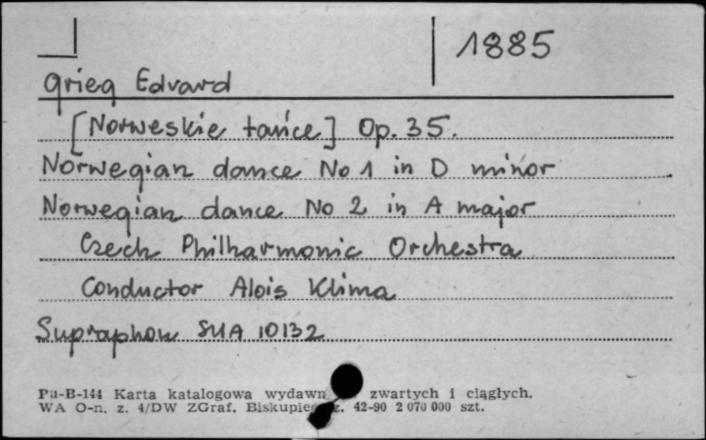 1885
Grieg Edvard
[Norweskie tańce] Op. 35.
Norwegian dance No 1 in D minor
Norwegian dance No 2 in A major
Czech Philharmonic Orchestra
Conductor Alois Klima
Supraphon SUA 10132
Pu-B-144 Karta katalogowa wydawn zwartych i ciągłych.
WA O-n. z. 4/DW ZGraf. z. 42-90 2 070 000 szt.